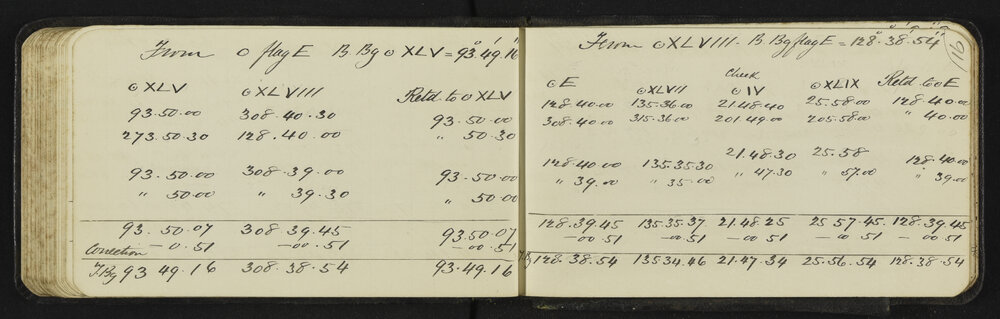 From ⊙ flag E B. Bg ⊙ XLV = 93°.49'.16"
⊙ XLV ⊙ XLVIII Retd to ⊙ XLV
93.50.00 308.40.30 93.50.00
273.50.30 128.40.00 " 50.30
93.50.00 308.39.00 93.50.00
" 50.00 " 39.30 " 50.00
93.50.07 308.39.45 93.50.07
Correction —0.51 —00.51 —00.51
T.Bg 93 49.16 308.38.54 93.49.16
16
From ⊙ XLVIII. B. Bg flag E = 128°.38'.54"
Check
⊙ E ⊙ XLVII ⊙ IV ⊙ XLIX Retd to E
128.40.00 135.36.00 21.48.40 25.58.00 128.40.00
308.40.00 315.36.00 201.49.00 205.58.00 " 40.00
128.40.00 135.35.30 21.48.30 25.58 128.40.00
" 39.00 " 35.00 " 47.30 " 57.00 " 39.00
128.39.45 135.35.37 21.48.25 25 57.45 128.39.45
—00 51 —00.51 —00.51 —00.51 —00.51
T.Bg 128.38.54 135 34.46 21.47.34 25.56.54 128.38.54